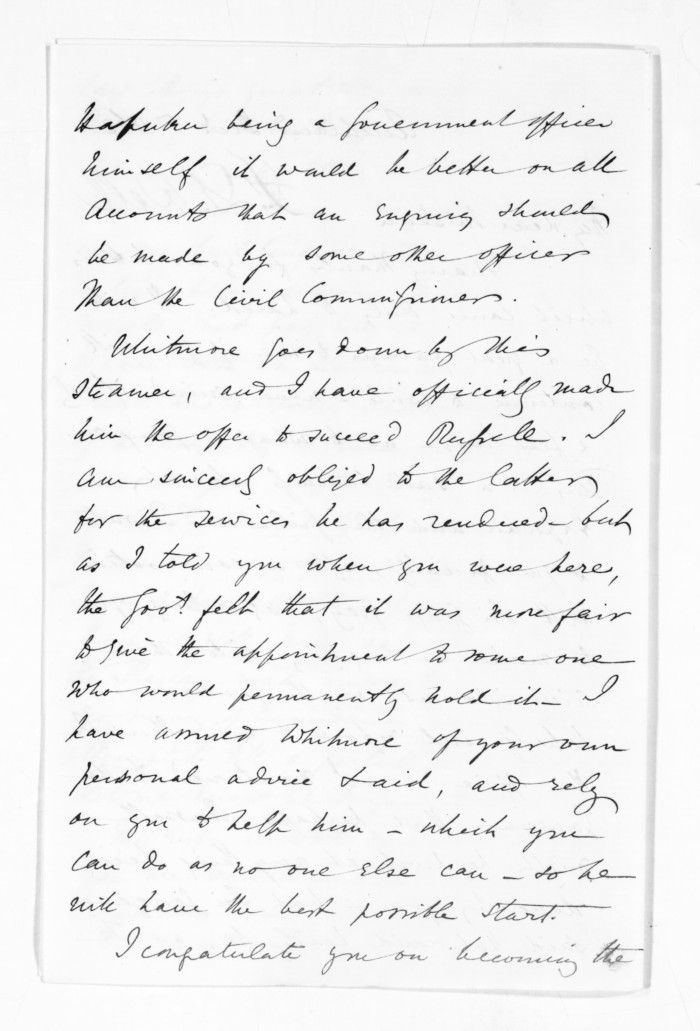 Hapuku being a Government officer
himself it would be better on all
Accounts that an Enquiry should
be made by some other officer
than the Civil Commissioners.
Whitmore goes down by this
Steamer, and I have officially made
him the offer to succeed Russell. I
am sincerely obliged to the latter
for the services he has rendered - but
as I told you when you were here,
the Govt. felt that it was more fair
to give the appointment to some one
who would permanently hold it - I
have assured Whitmore of your own
personal advice & aid, and rely
on you to help him - which you
can do as no one else can - so he
will have the best possible start.
I congratulate you on becoming the